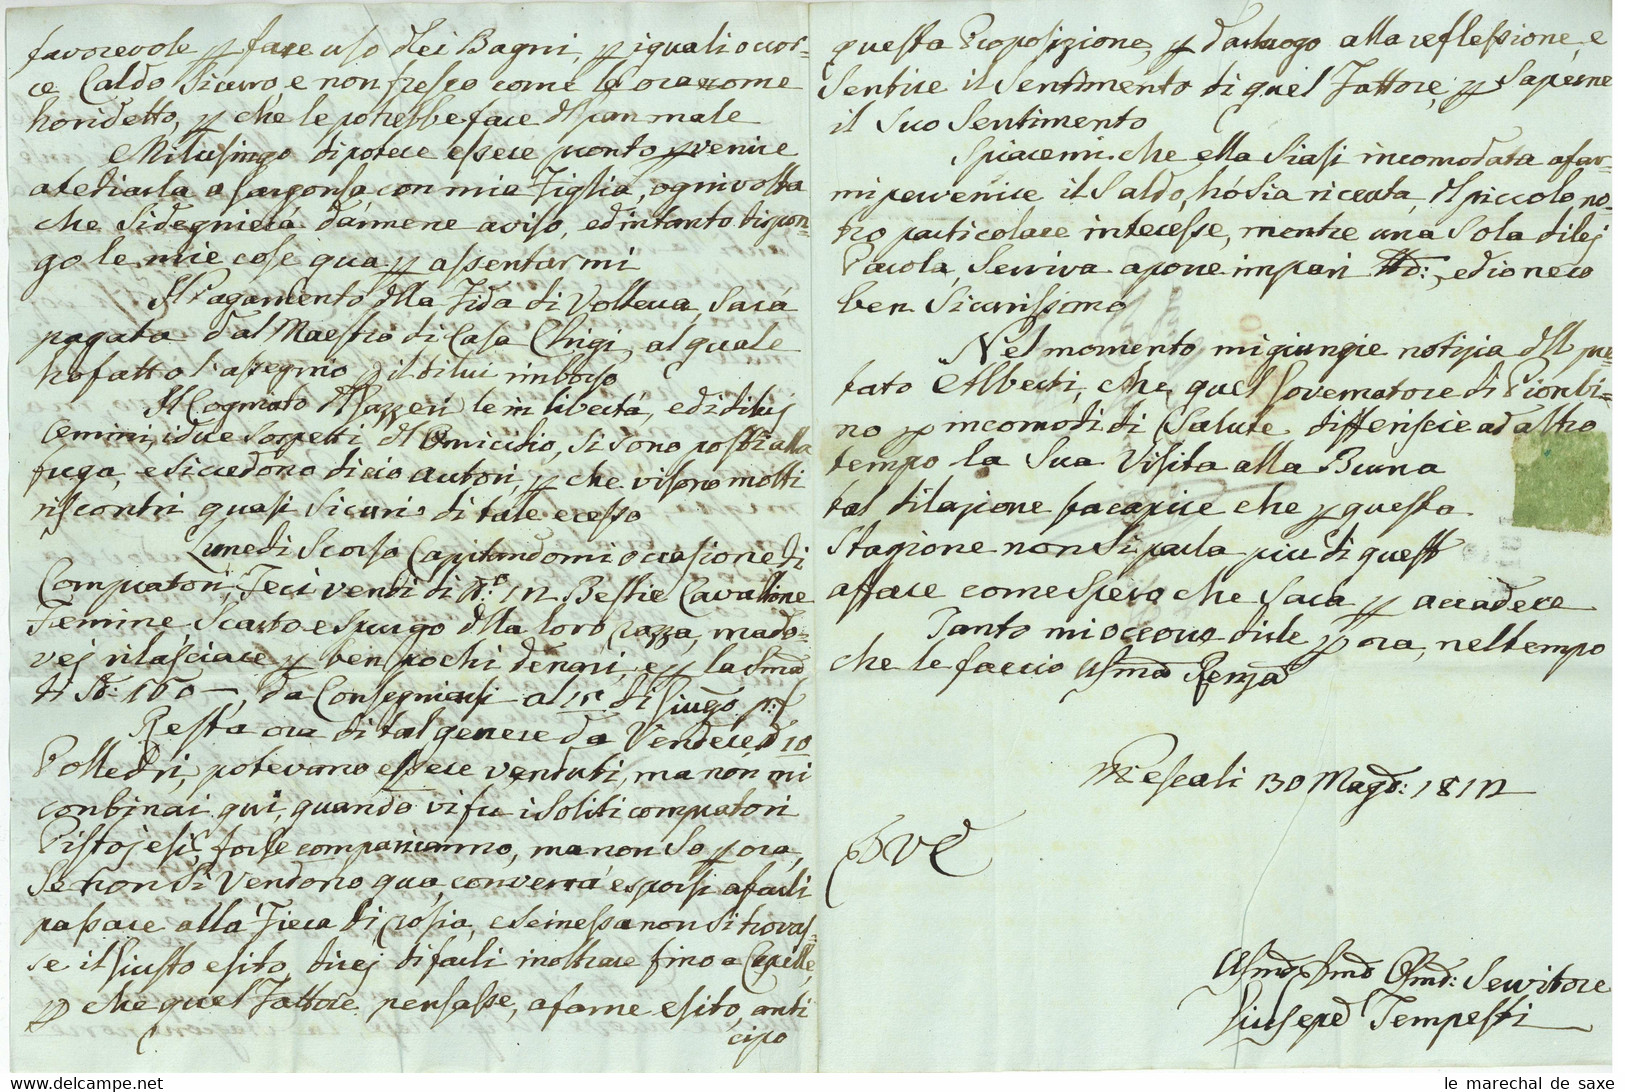 favorevole p fare uso dei Bagni, p i quali occor=
ce Caldo Sicuro, e non fresco come le ora come
ho ridetto, p che le potrebbe fare del gran male
Mi lusingo di potere essere pronto p venire
a tediarla a Sargonsa con mia Figlia, ogni volta
che Si degnierà darmene aviso, ed intanto dispon=
go le mie cose qua p assentarmi
Il Pagamento della Fida di Volterra, Sarà
pagata dal Maestro di Casa Chigi, al quale
ho fatto l'assegnio p il di lui imborso
Il Cogniato del Pazzeri le in libertà, e di di lui
Omini, i due Sospetti del Omicidio, Si sono posti alla
fuga, e Si credono di cio autori, p che vi sono molti
riscontri quasi Sicuri di tale ecesso
Lunedi Scorso Capitandomi occasione di
Compratori, Feci vendi di N.o 12 Bestie Cavalline
Femine, Scarto e Spurgo della loro razza, ma do=
vej rilasciare p ben pochi denari, e p la Soma
di 160 —, da Consegniarsi al 15 di Giugo p:
Resta ora di tal genere da Vendere 10
Polledri, potevano essere venduti, ma non mi
conbinai qui, quando vi fu i Soliti compratori
Pistojesi, forse compariranno, ma non So p ora,
Se non Si Vendono qua, converrà esporsi a farli
passare alla Fiera di Rosia, e Se in essa non Si trovas=
se il Giusto esito, direj di farli inoltrare fino a Capelle,
p che quel Fattore pensasse, a farne esito, anti
cipo
questa Proposizione, p dar luogo alla reflessione, e
Sentire il Sentimento di quel Fattore, p Saperne
il Suo Sentimento
Spiacemi che ella Siasi incomodata a far=
mi pervenire il Saldo, ho Sia ricevta, del piccolo no=
tro particolare interesse, mentre una Sola di lej
Parola, Serviva a porre in pari, ed io nero
ben Sicurissimo
Nel momento mi giungie notizia del pre=
fato Alberti, che quel Governatore di Pionbi=
no p incomodi di Salute differiscie ad altro
tempo la Sua Visita alla Buna
tal dilazione fa capire che p questa
Stagione non Si parla piu di quest
affare come Spero che Sara p accadere
Tanto mi occore dirle p ora, nel tempo
che le faccio Renza
Pescali 30 Mag: 1812
DVE
Servitore
Giusepe Tempesti
le marechal de saxe